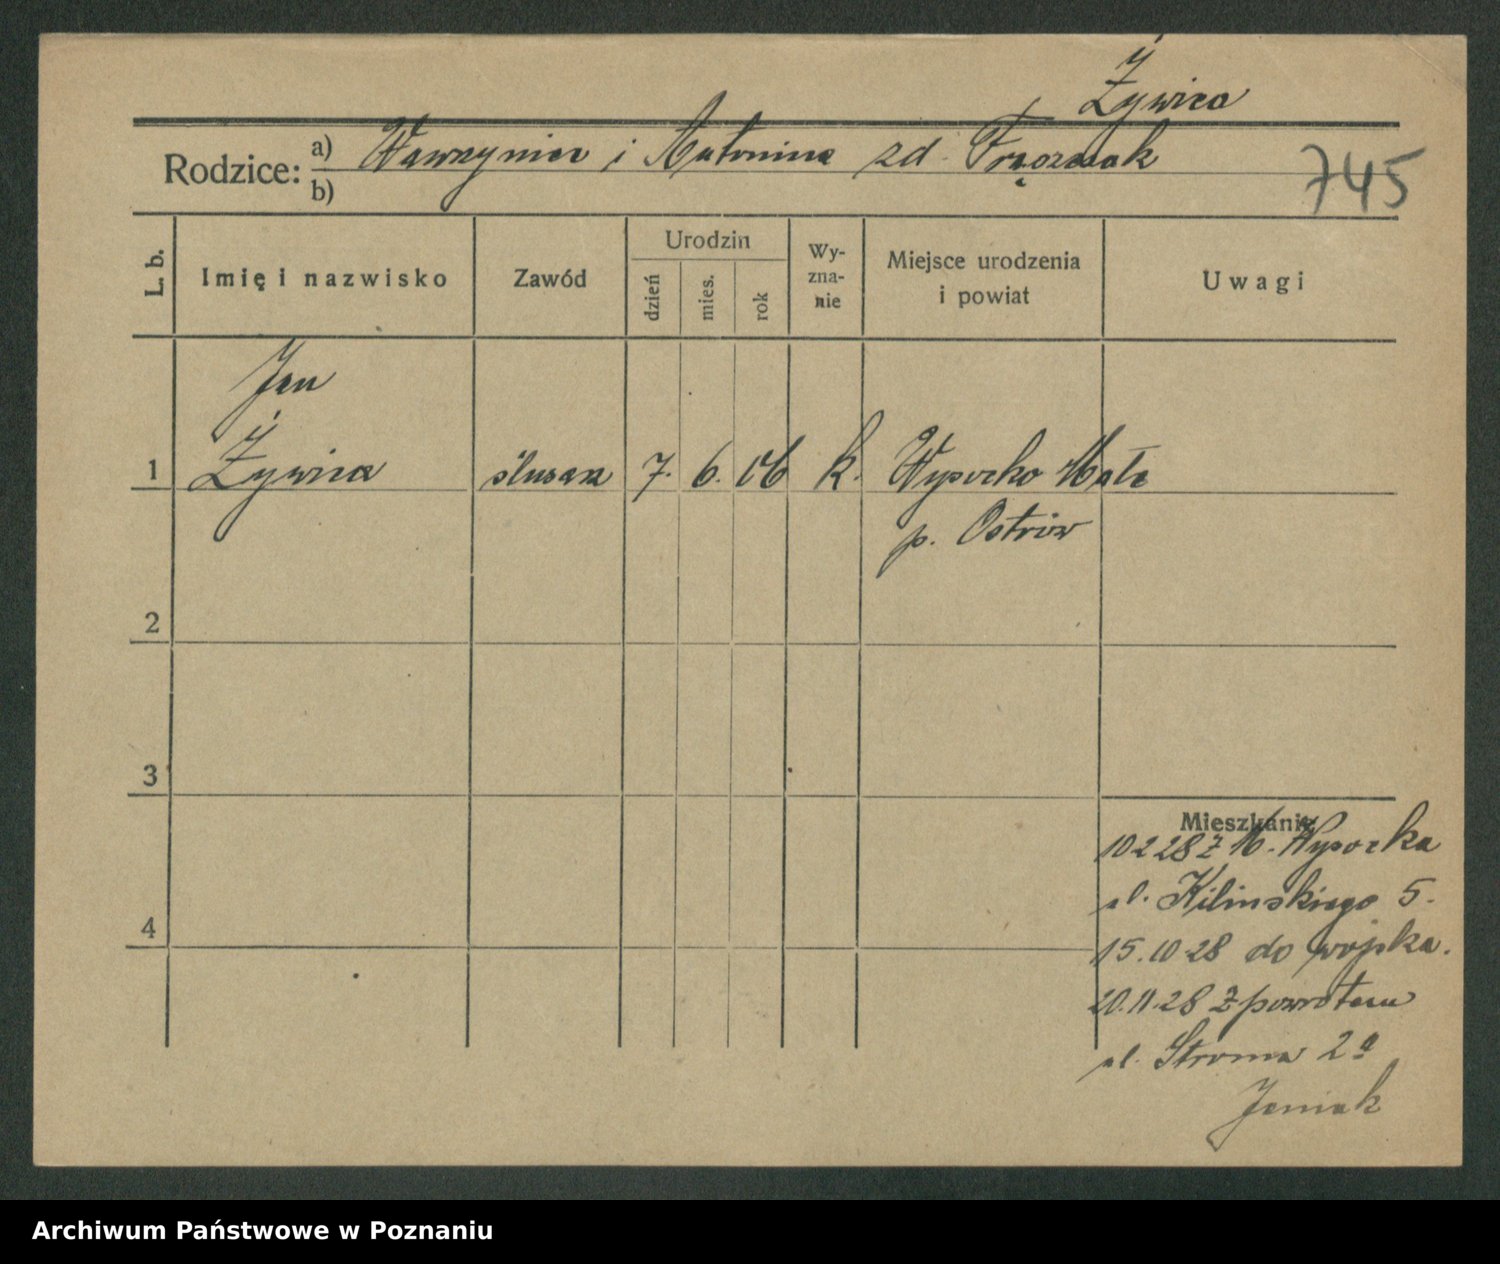 Żywica
Rodzice: a) Wawrzyniec i Antonina zd.
b)
745
L. b. Imię i nazwisko Zawód Urodzin dzień mies. rok Wyznanie Miejsce urodzenia i powiat Uwagi
Jan
1 Żywica ślusarz 7. 6. 06 k. Wysocko Małe
p. Ostrów
2
3
Mieszkanie
10 2 28 z M. Wysocka
ul. Kilinskiego 5.
4
15.10 28 do wojska.
20.11.28 z powrotem
ul. Stroma 2a
Janiak
Archiwum Państwowe w Poznaniu